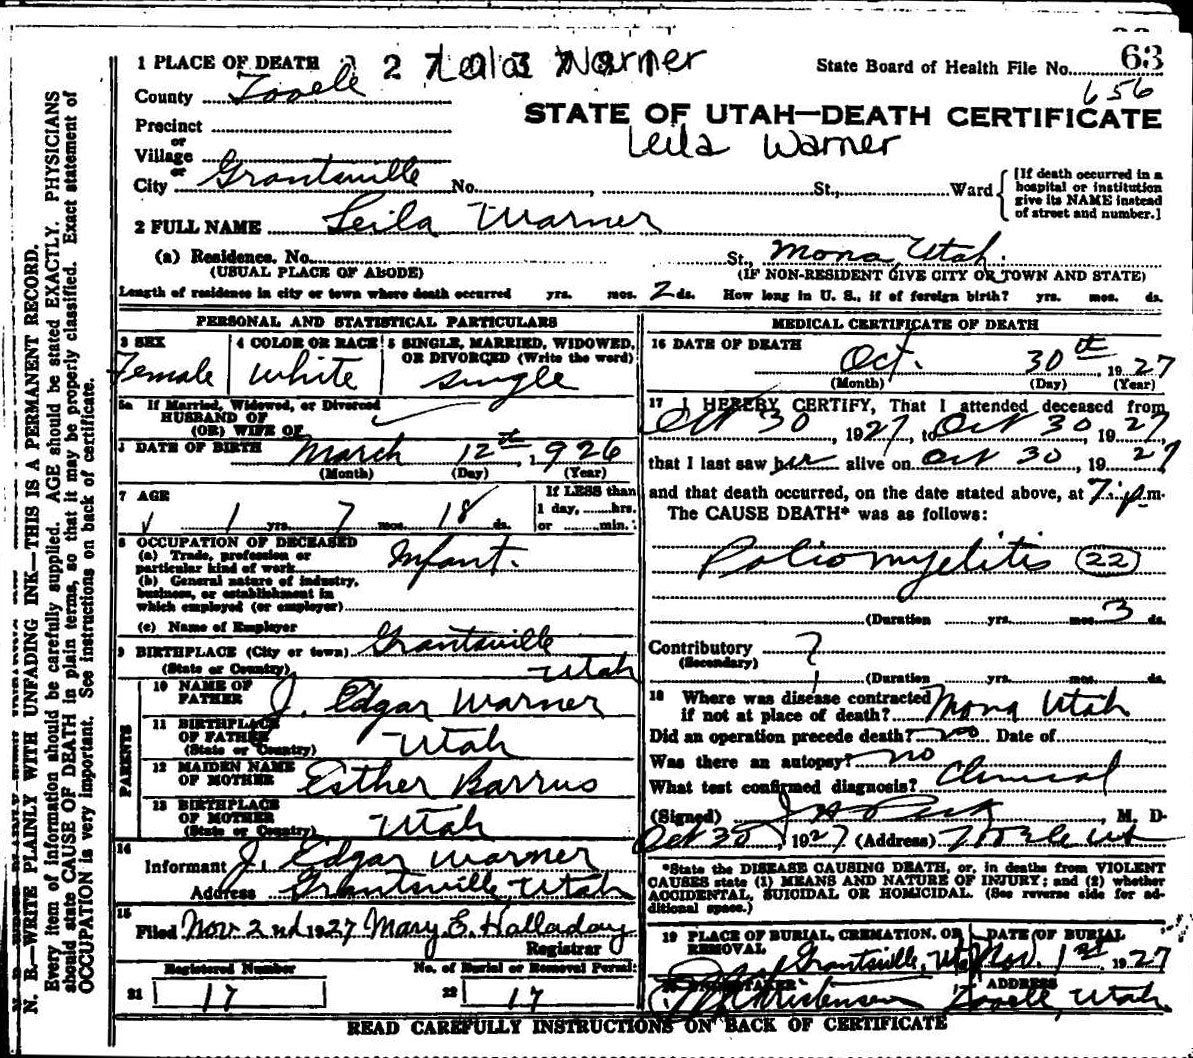 63
1 PLACE OF DEATH Lala Warner State Board of Health File No.
656
County Tooele
STATE OF UTAH—DEATH CERTIFICATE
Precinct
or
Leila Warner
Village
or
City Grantsville No. , St., Ward
[If death occurred in a hospital or institution give its NAME instead of street and number.]
2 FULL NAME Leila Warner
(a) Residence. No. St., Mona, Utah.
(USUAL PLACE OF ABODE) (IF NON-RESIDENT GIVE CITY OR TOWN AND STATE)
Length of residence in city or town where death occurred yrs. mos. 2 ds. How long in U. S., if of foreign birth? yrs. mos. ds.
PERSONAL AND STATISTICAL PARTICULARS
3 SEX 4 COLOR OR RACE 5 SINGLE, MARRIED, WIDOWED,
OR DIVORCED (Write the word)
Female White Single
5a If Married, Widowed, or Divorced
HUSBAND OF
(OR) WIFE OF
DATE OF BIRTH March 12th, 1926
(Month) (Day) (Year)
7 AGE If LESS than
1 day, hrs.
1 yrs. 7 mos. 18 ds. or min.
8 OCCUPATION OF DECEASED
(a) Trade, profession or
particular kind of work Infant.
(b) General nature of industry,
business, or establishment in
which employed (or employer)
(c) Name of Employer
9 BIRTHPLACE (City or town) Grantsville
(State or Country) Utah
PARENTS
10 NAME OF
FATHER J. Edgar Warner
11 BIRTHPLACE
OF FATHER
(State or Country) Utah
12 MAIDEN NAME
OF MOTHER Esther Barrus
13 BIRTHPLACE
OF MOTHER
(State or Country) Utah
14
Informant J. Edgar Warner
Address Grantsville, Utah
15
Filed Nov 2nd 1927 Mary E. Halladay
Registrar
Registered Number No. of Burial or Removal Permit
21 17 22 17
MEDICAL CERTIFICATE OF DEATH
16 DATE OF DEATH
Oct. 30th, 1927
(Month) (Day) (Year)
17 I HEREBY CERTIFY, That I attended deceased from
Oct 30, 1927, to Oct 30, 1927
that I last saw her alive on Oct 30, 1927
and that death occurred, on the date stated above, at 7 p.m.
The CAUSE DEATH* was as follows:
Poliomyelitis (22)
(Duration yrs. mos. 3 ds.
Contributory ?
(Secondary)
(Duration yrs. mos. ds.
18 Where was disease contracted
if not at place of death? Mona Utah
Did an operation precede death? no Date of
Was there an autopsy? no
What test confirmed diagnosis? Clinical
(Signed) , M. D.
Oct 30, 1927 (Address) Tooele Ut
*State the DISEASE CAUSING DEATH, or, in deaths from VIOLENT
CAUSES state (1) MEANS AND NATURE OF INJURY; and (2) whether
ACCIDENTAL, SUICIDAL OR HOMICIDAL. (See reverse side for ad-
ditional space.)
19 PLACE OF BURIAL, CREMATION, OR DATE OF BURIAL
REMOVAL
Grantsville, Utah Nov. 1st 1927
ADDRESS
Christensen Tooele, Utah
READ CAREFULLY INSTRUCTIONS ON BACK OF CERTIFICATE
N. B.—WRITE PLAINLY WITH UNFADING INK—THIS IS A PERMANENT RECORD.
Every item of information should be carefully supplied. AGE should be stated EXACTLY. PHYSICIANS
should state CAUSE OF DEATH in plain terms, so that it may be properly classified. Exact statement of
OCCUPATION is very important. See instructions on back of certificate.